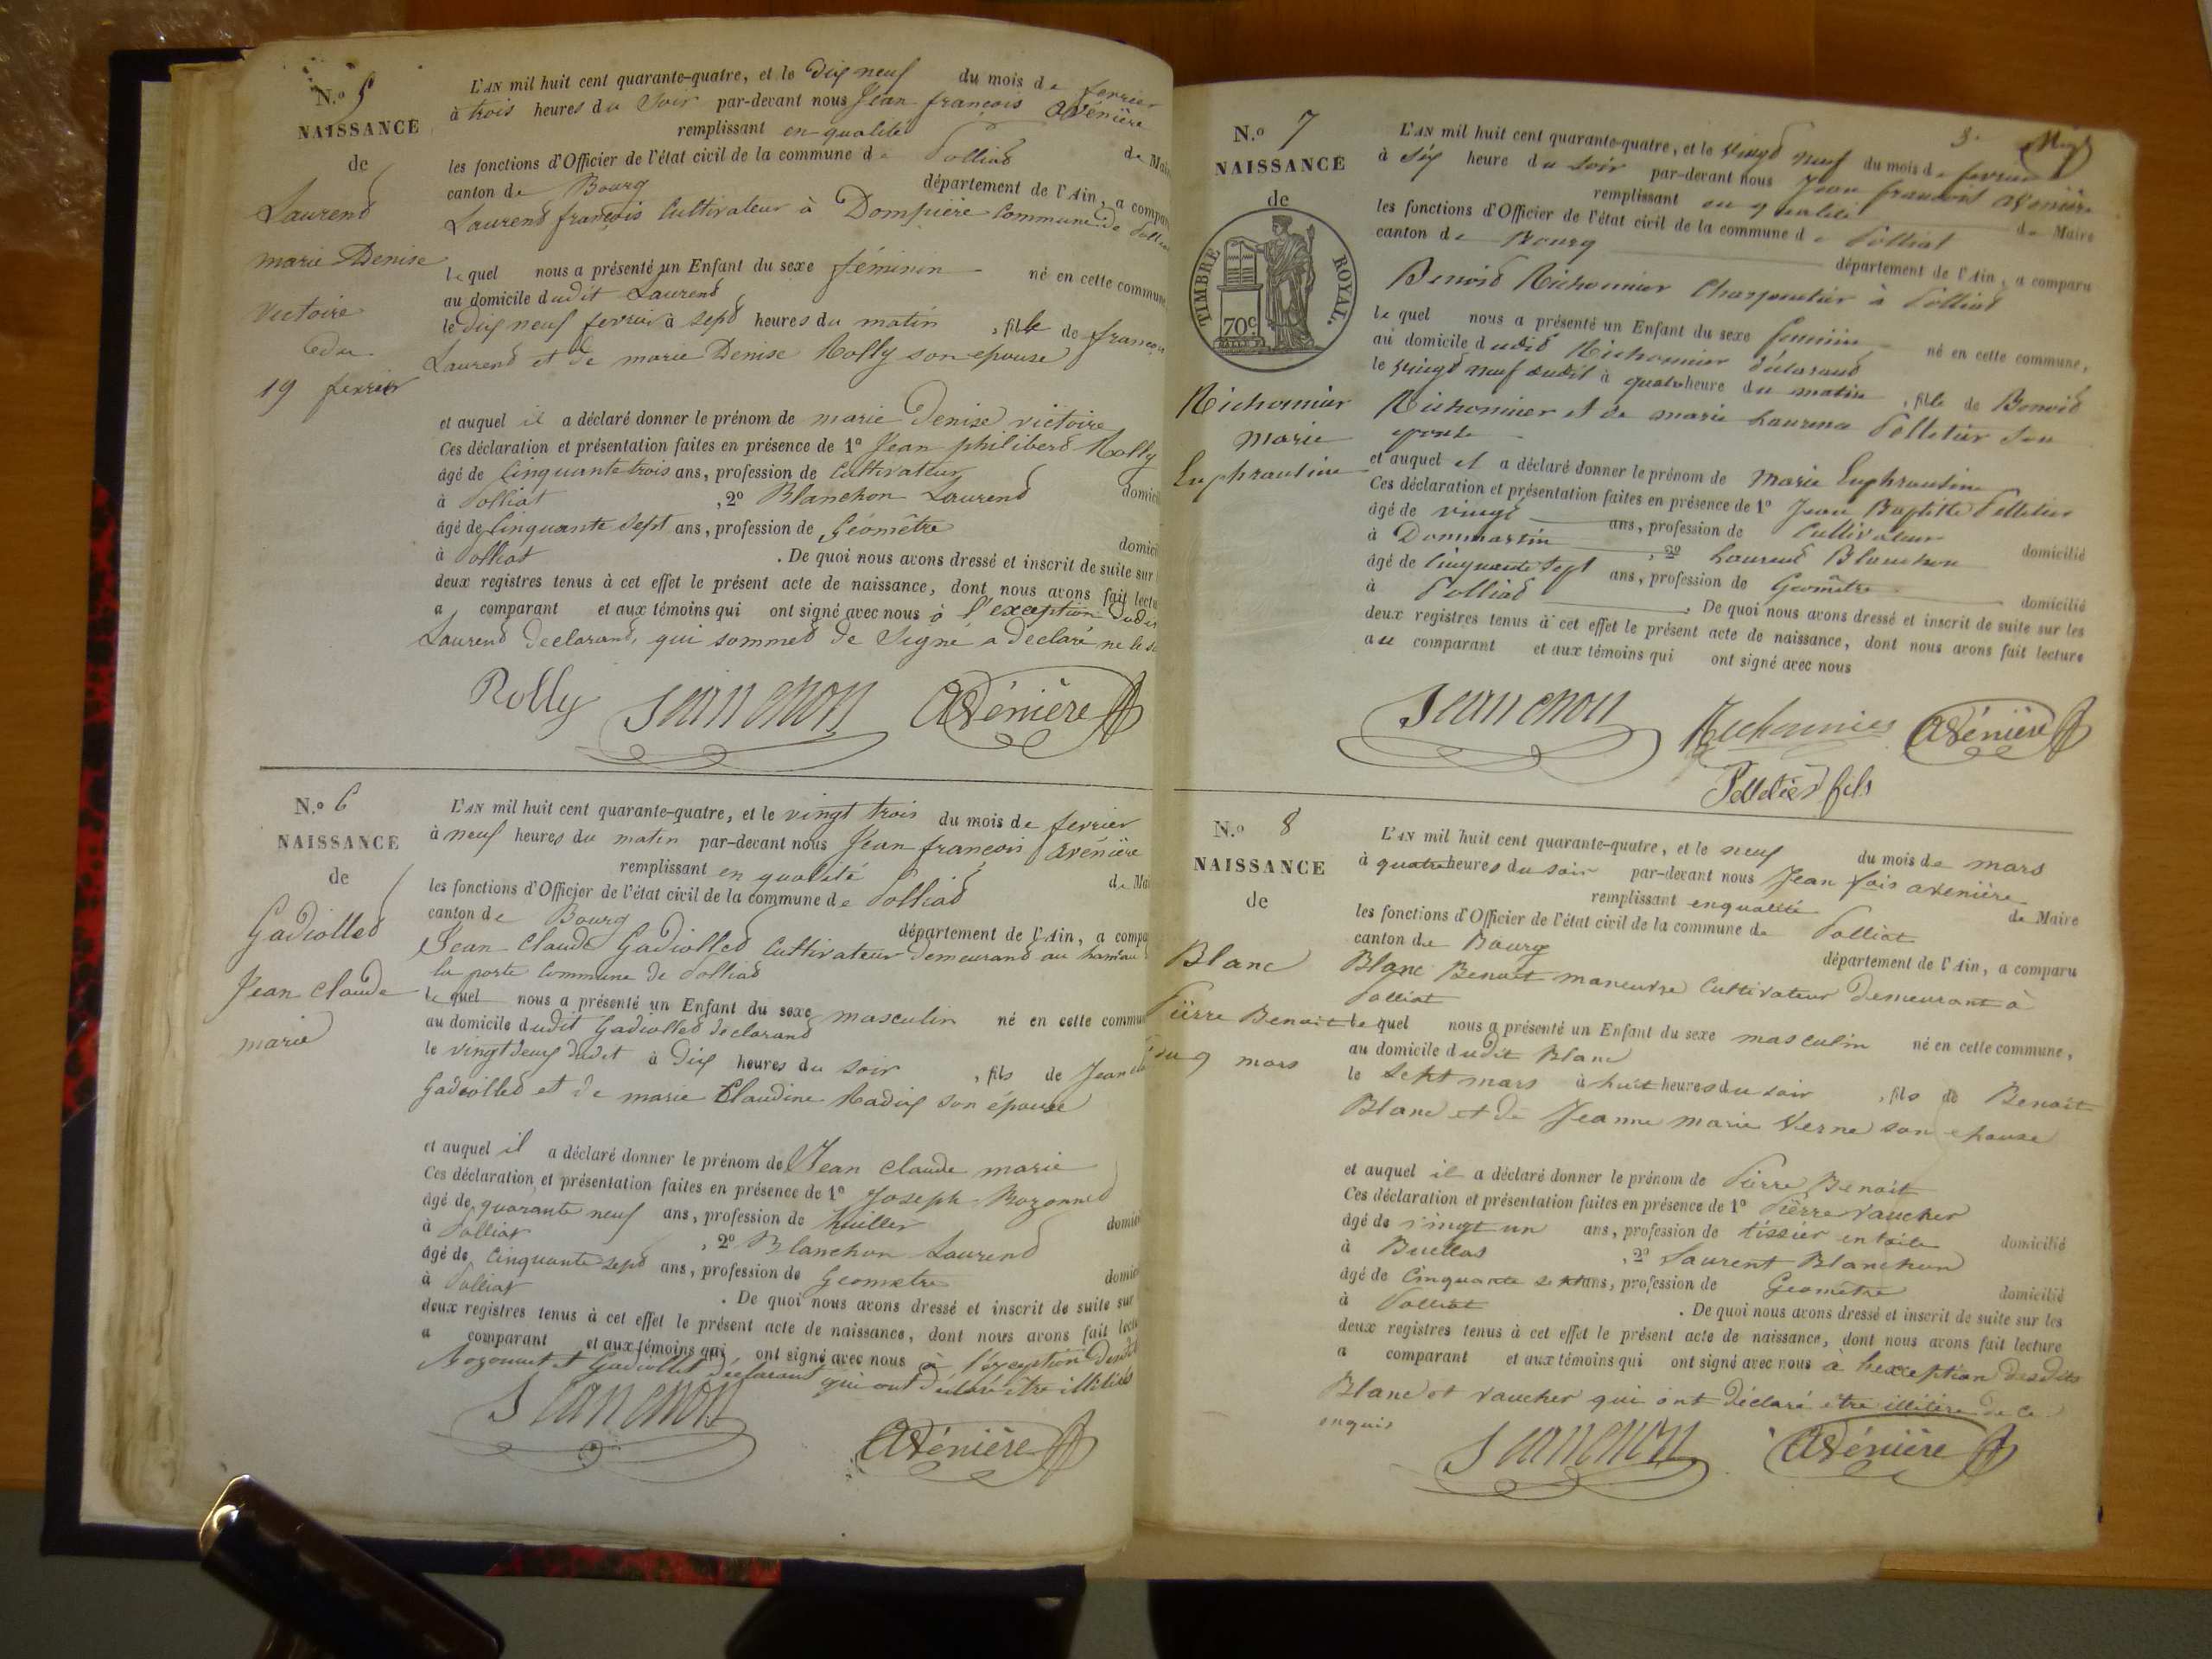 N.o 5
NAISSANCE
de
Laurend
marie Denise
Victoire
Edu
19 ferrier
L'AN mil huit cent quarante-quatre, et le dix neuf du mois de ferrier
à trois heures du soir par-devant nous Jean françois Avénière
remplissant en qualité de Mai
les fonctions d'Officier de l'état civil de la commune de Polliad
canton de Bourg département de l'Ain, a compa
Laurend françois Cultivateur à Dompière Commune de Pollia
lequel nous a présenté un Enfant du sexe féminin né en cette commune,
au domicile dudit Laurend
le dix neuf ferrier à sepd heures du matin , fille de françois
Laurend et de marie Denise Rolly son epouse
et auquel il a déclaré donner le prénom de marie Denise victoire
Ces déclaration et présentation faites en présence de 1º Jean philiberd Rolly
âgé de Cinquante trois ans, profession de Cultivateur
à Polliat , 2º Blanchon Laurend domici
âgé de Cinquante Sept ans, profession de Géomêtre
à Polliat . De quoi nous avons dressé et inscrit de suite sur domici
deux registres tenus à cet effet le présent acte de naissance, dont nous avons fait lectu
a comparant et aux témoins qui ont signé avec nous à l'exception dudit
Laurend declarand, qui sommed de Signé a declaré ne le
Rolly Jeanchon Avénière
N.o 6
NAISSANCE
de
Gadiolled
Jean Claude
marie
L'AN mil huit cent quarante-quatre, et le vingt trois du mois de ferrier
à neuf heures du matin par-devant nous Jean françois Avénière
remplissant en qualité de Mai
les fonctions d'Officier de l'état civil de la commune de Polliad
canton de Bourg département de l'Ain, a compa
Jean Claude Gadiolled Cultivateur demeurand au hameau
la poste Commune de Polliad
lequel nous a présenté un Enfant du sexe masculin né en cette commun
au domicile dudit Gadiolled declarand
le vingt deux dudit à dix heures du soir , fils de Jean
Gadiolled et de marie Claudine Radix son épouse
et auquel il a déclaré donner le prénom de Jean Claude marie
Ces déclaration et présentation faites en présence de 1º Joseph Bozonned
âgé de quarante neuf ans, profession de huiller domici
à Polliat , 2º Blanchon Laurend
âgé de Cinquante sepd ans, profession de Geometre domici
à Polliat . De quoi nous avons dressé et inscrit de suite sur
deux registres tenus à cet effet le présent acte de naissance, dont nous avons fait lectu
a comparant et aux témoins qui ont signé avec nous à l'exception desdits
Bozonnet et Gadiollet déclarant qui ont déclaré être illiters
Jeanchon Avénière
8.
N.o 7
NAISSANCE
de
TIMBRE ROYAL.
70c
Richonnier
marie
Euphrausine
L'AN mil huit cent quarante-quatre, et le vingd neuf du mois de fevrier
à six heure du soir par-devant nous Jean francois avenière
remplissant en qualité de Maire
les fonctions d'Officier de l'état civil de la commune de Polliat
canton de Bourg département de l'Ain, a comparu
Benoid Richonnier Charpentier à Polliad
lequel nous a présenté un Enfant du sexe feminin né en cette commune,
au domicile dudid Richonnier déclarand
le vingd neuf dudit à quatre heure du matin , fille de Benoid
Richonnier et de marie Laurence Pelletier son
epouse
et auquel il a déclaré donner le prénom de Marie Euphrausine
Ces déclaration et présentation faites en présence de 1º Jean Baptiste Pelletier
âgé de vingt ans, profession de Cultivateur domicilié
à Dommartin , 2º Laurend Blanchon
âgé de Cinquante Sept ans, profession de Geomêtre domicilié
à Polliad . De quoi nous avons dressé et inscrit de suite sur les
deux registres tenus à cet effet le présent acte de naissance, dont nous avons fait lecture
a u comparant et aux témoins qui ont signé avec nous
Jeanchon Richonnier Avénière
Pelletier fils
N.o 8
NAISSANCE
de
Blanc
Pierre Benoit
Edu 9 mars
L'AN mil huit cent quarante-quatre, et le neuf du mois de mars
à quatre heures du soir par-devant nous Jean fois avenière
remplissant en qualité de Maire
les fonctions d'Officier de l'état civil de la commune de Polliat
canton de Bourg département de l'Ain, a comparu
Blanc Benoit maneuvre Cultivateur demeurant à
Polliat
lequel nous a présenté un Enfant du sexe masculin né en cette commune,
au domicile dudit Blanc
le sept mars à huit heures du soir , fils de Benoit
Blanc et de Jeanne marie Verne son epouse
et auquel il a déclaré donner le prénom de Pierre Benoit
Ces déclaration et présentation faites en présence de 1º Pierre vaucher
âgé de vingt un ans, profession de tissier en toile domicilié
à Buellas , 2º Laurent Blanchon
âgé de Cinquante sept ans, profession de Geomêtre domicilié
à Polliat . De quoi nous avons dressé et inscrit de suite sur les
deux registres tenus à cet effet le présent acte de naissance, dont nous avons fait lecture
a comparant et aux témoins qui ont signé avec nous à l'exception desdits
Blanc et vaucher qui ont déclaré etre illitére de ce
enquis
Jeanchon Avénière